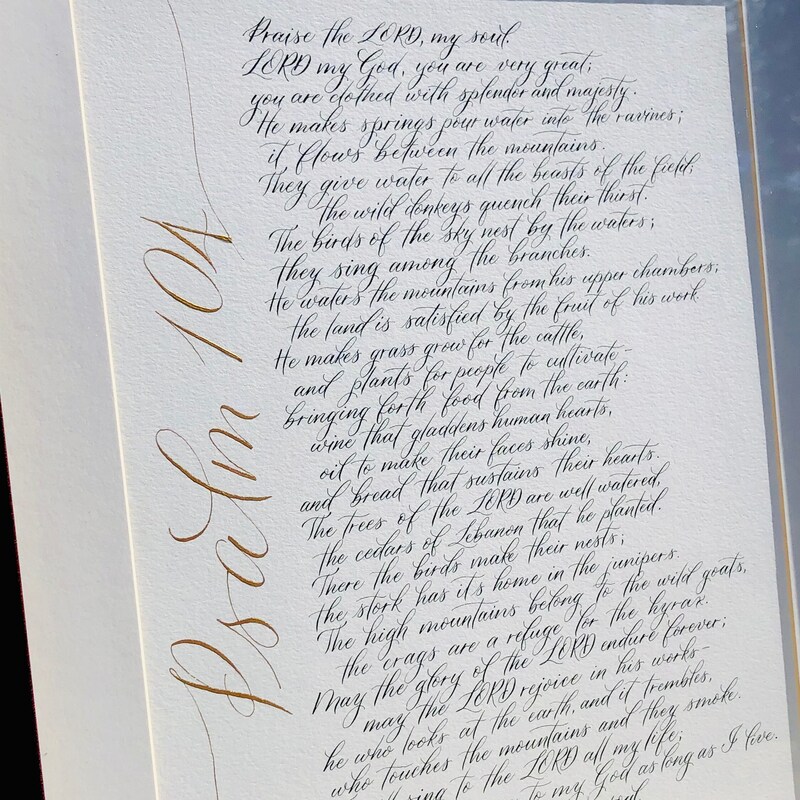 Psalm 104
Praise the LORD, my soul.
LORD my God, you are very great;
you are clothed with splendor and majesty.
He makes springs pour water into the ravines;
it flows between the mountains.
They give water to all the beasts of the field;
the wild donkeys quench their thirst.
The birds of the sky nest by the waters;
they sing among the branches.
He waters the mountains from his upper chambers;
the land is satisfied by the fruit of his work.
He makes grass grow for the cattle,
and plants for people to cultivate-
bringing forth food from the earth:
wine that gladdens human hearts,
oil to make their faces shine,
and bread that sustains their hearts.
The trees of the LORD are well watered,
the cedars of Lebanon that he planted.
There the birds make their nests;
the stork has it's home in the junipers.
The high mountains belong to the wild goats,
the crags are a refuge for the hyrax.
May the glory of the LORD endure forever;
may the LORD rejoice in his works-
he who looks at the earth, and it trembles,
who touches the mountains and they smoke.
to the LORD all my life;
to my God as long as I live.
soul